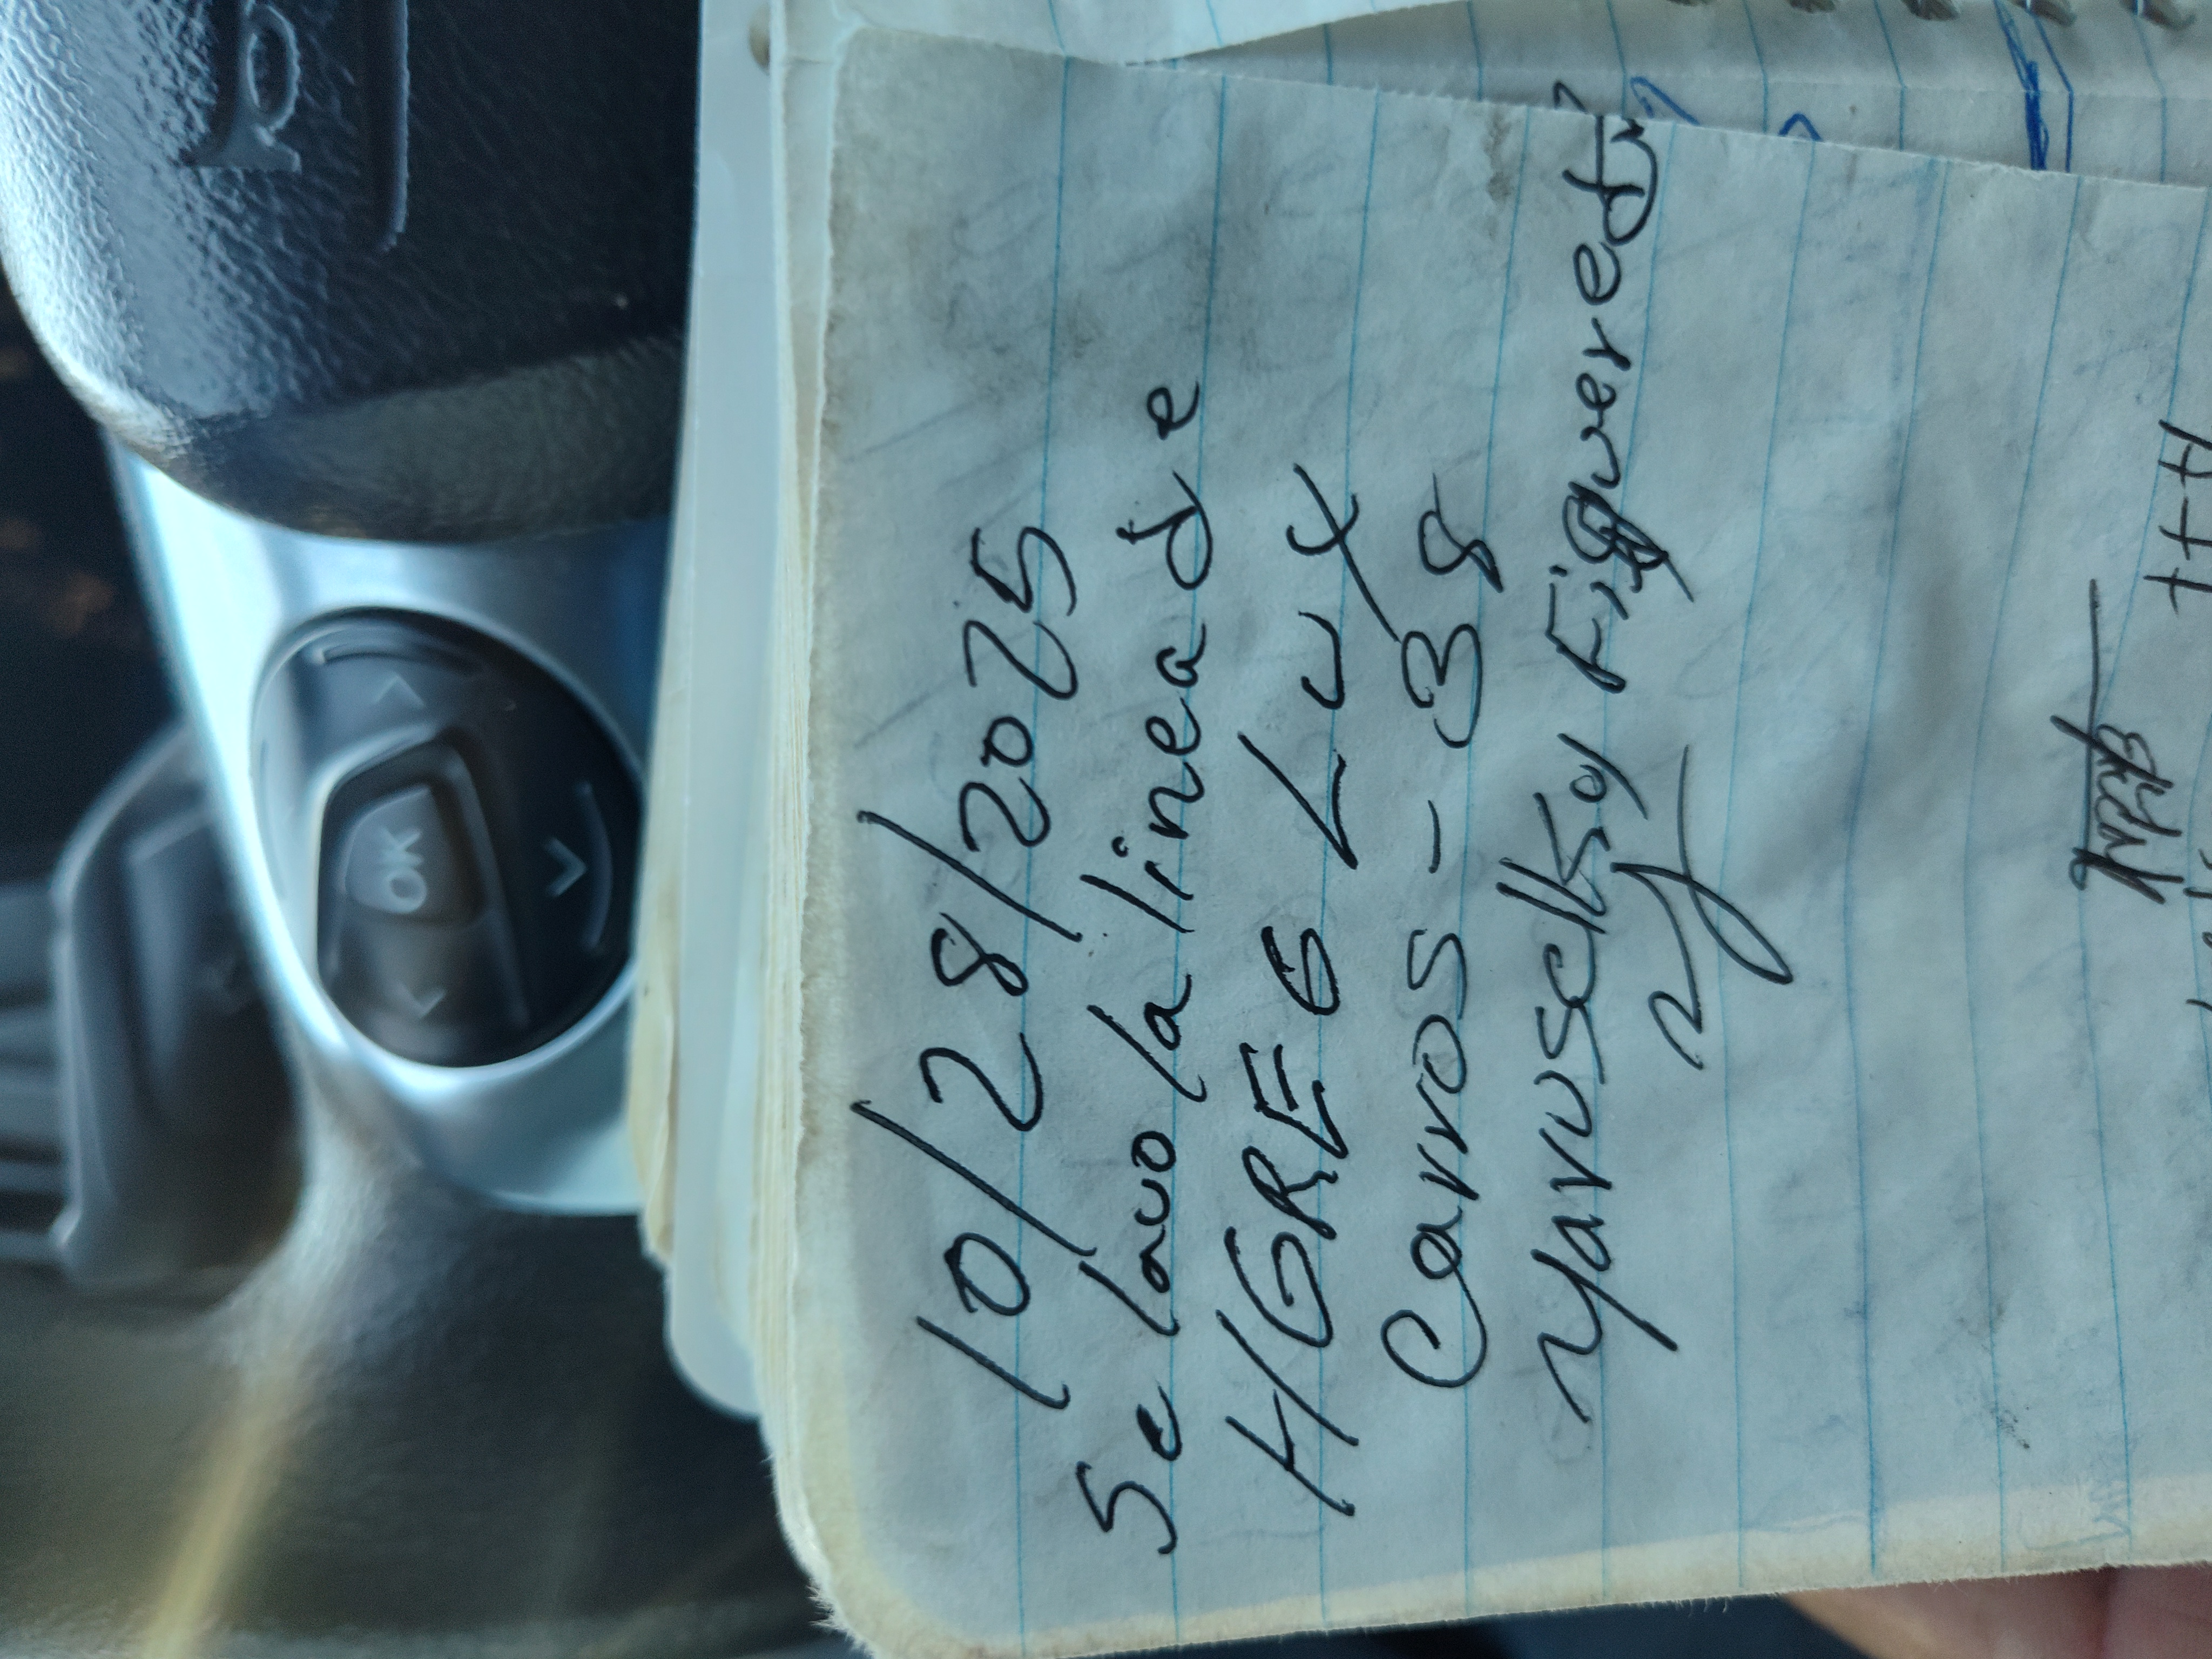 10/28/2025
Se lavo la linea de
HGREG Lux
Carros - 38
Yaruselky Figueredo
OK